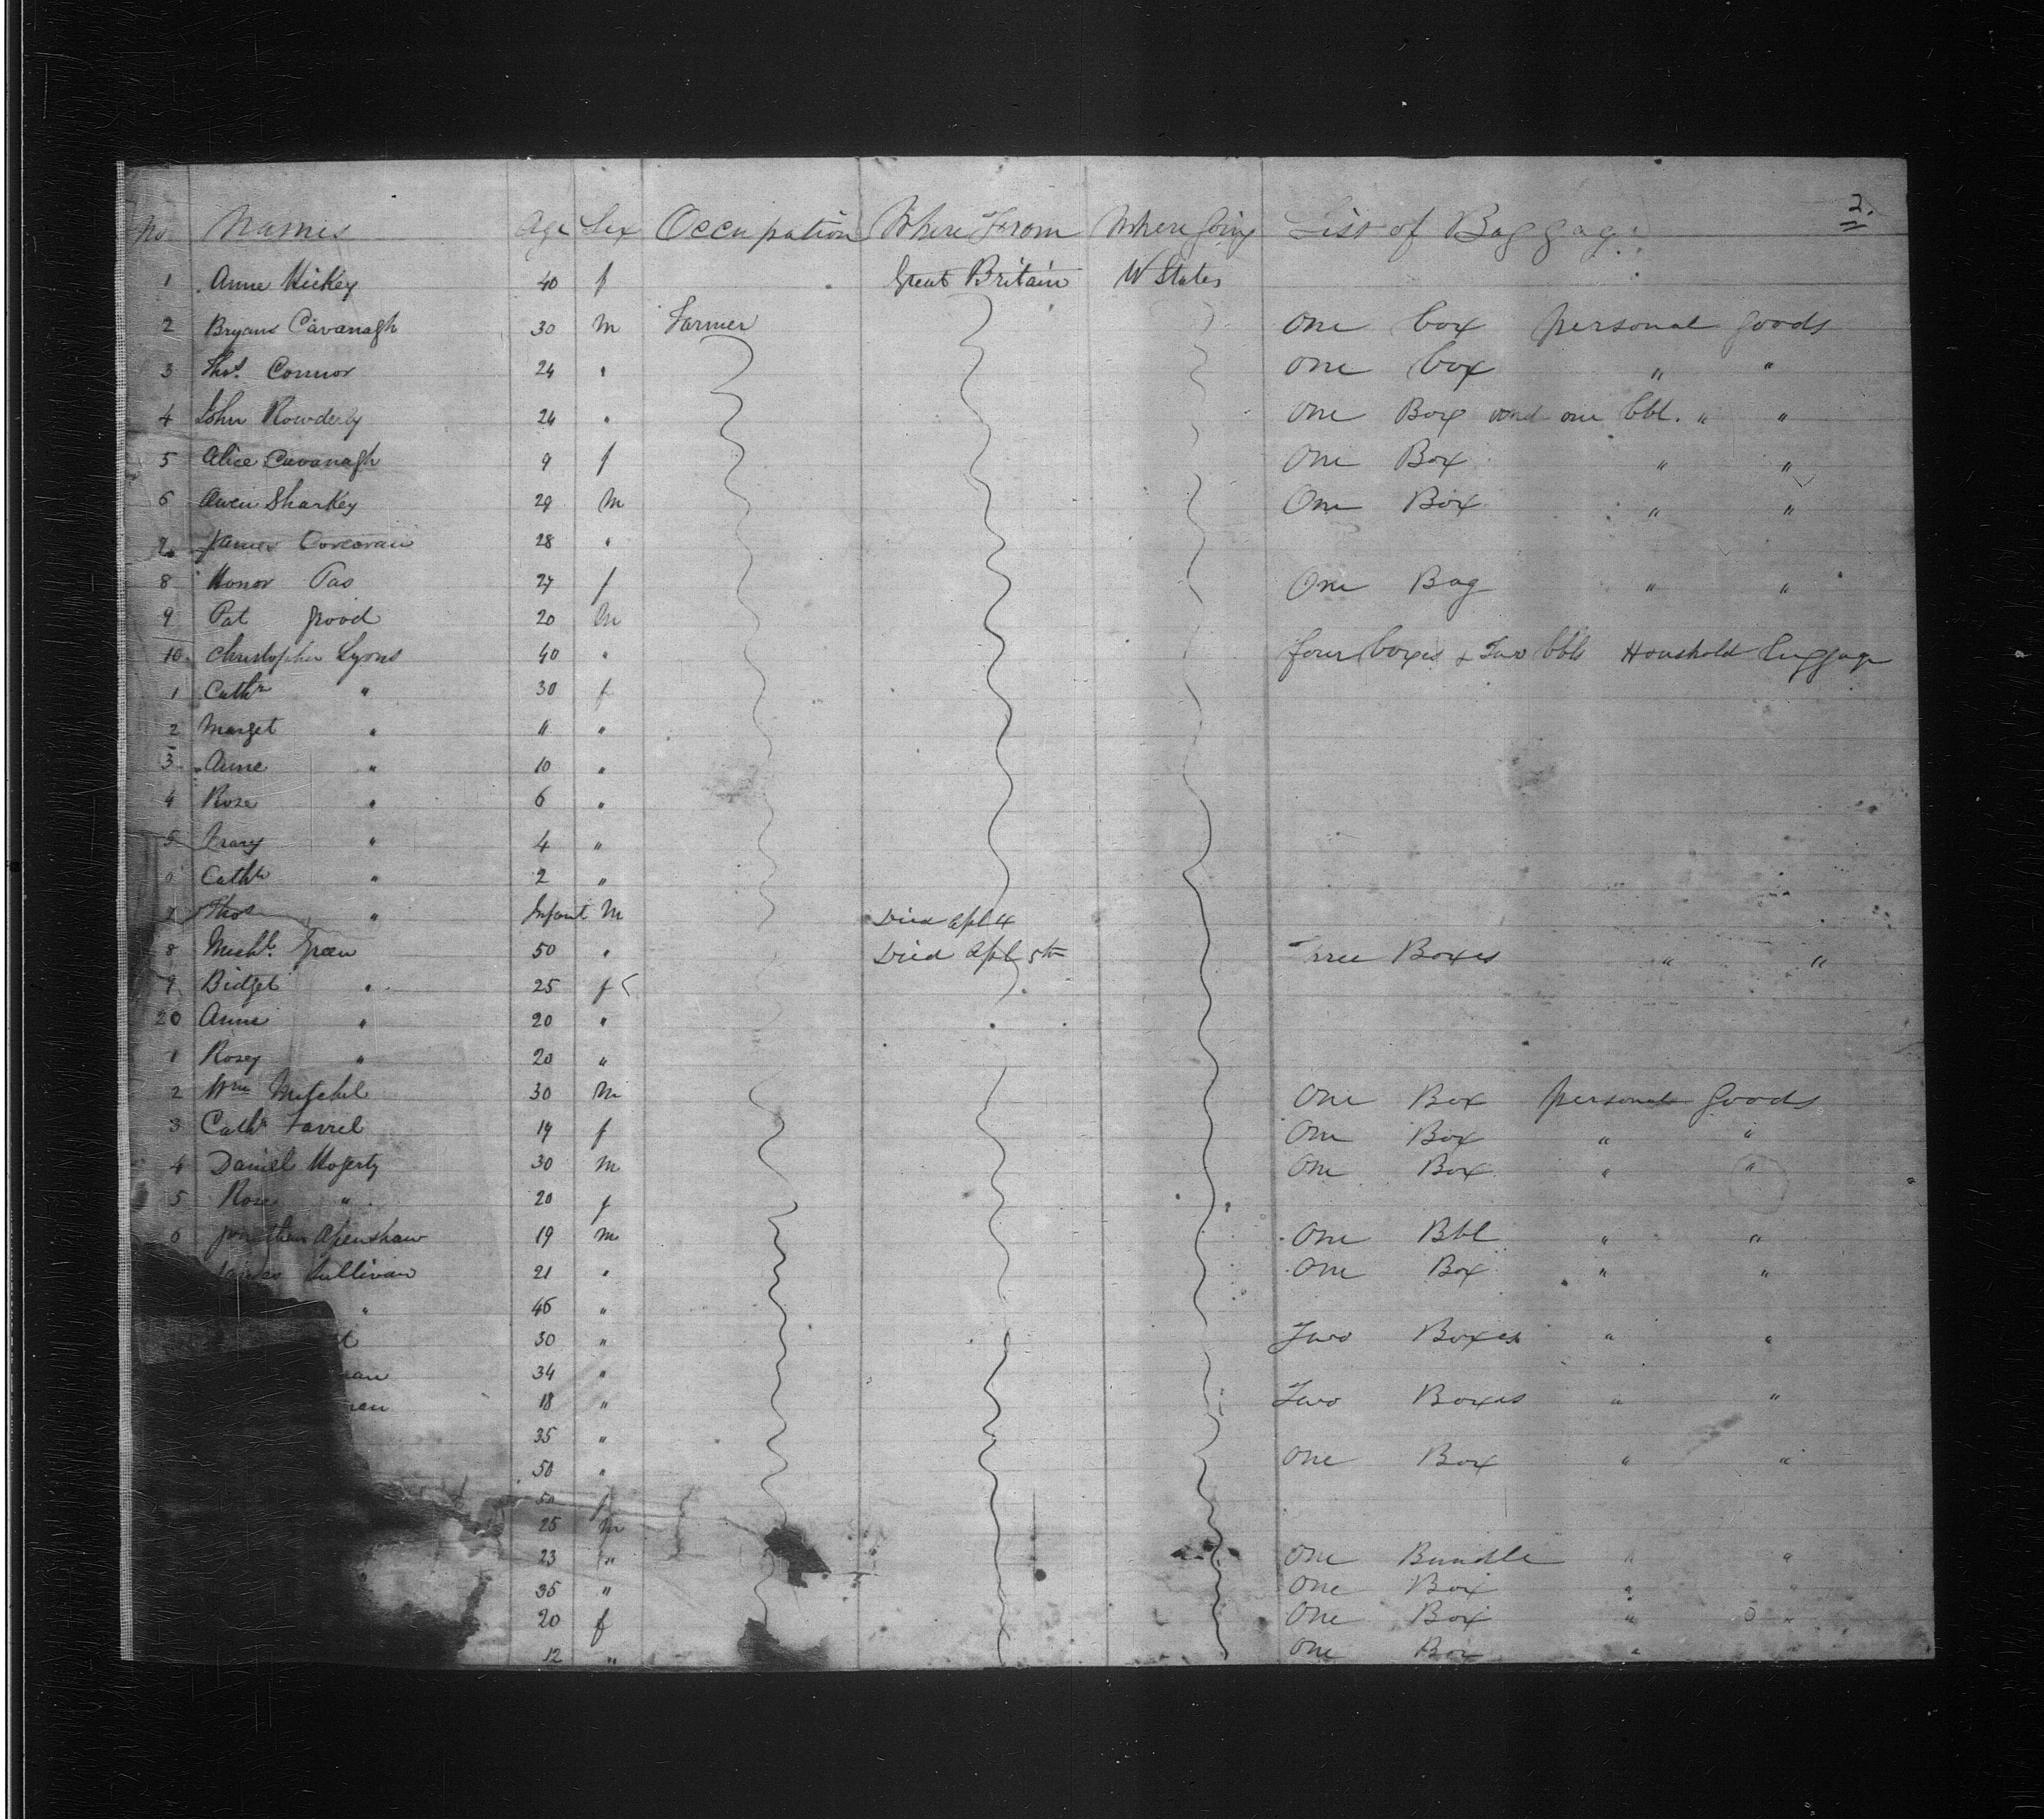 2.
No. Names Age Sex Occupation Where From Where Going List of Baggage
1 Anne Hickey 40 f Great Britain U States
2 Bryans Cavanagh 30 M Farmer One box personal goods
3 Thos. Connor 24 " One box " "
4 John Rowderly 24 " One Box and one bbl. " "
5 Alice Cavanagh 9 f One Box " "
6 Owen Sharkey 29 M One Box " "
7 James Corcoran 28 "
8 Honor 27 f One Bag " "
9 Pat 20 M
10 Christopher Lyons 40 " four boxes & Two bbls Houshold luggage
1 Cathr " 30 f
2 Marget " 11 "
3 Anne " 10 "
4 Rose " 6 "
5 " 4 "
6 Cathr " 2 "
7 Thos " Infant M Died Apl 4
8 Michl. Green 50 " Died Apl 5th Three Boxes " "
9 Bidget " 25 f
20 Anne " 20 "
1 Rosey " 20 "
2 Wm Mitchel 30 M One Box personal Goods
3 Cathr Farrel 19 f One Box " "
4 Daniel Hogerty 30 M One Box " "
5 Rose " 20 f
6 Jonathan Openshaw 19 M One Bbl " "
James Sullivan 21 " One Box " "
" 46 "
30 " Two Boxes " "
34 "
18 " Two Boxes " "
35 "
50 " One Box " "
50 f
25 M
23 " One Bundle " "
35 " One Box " "
20 f One Box " "
12 " One Box " "